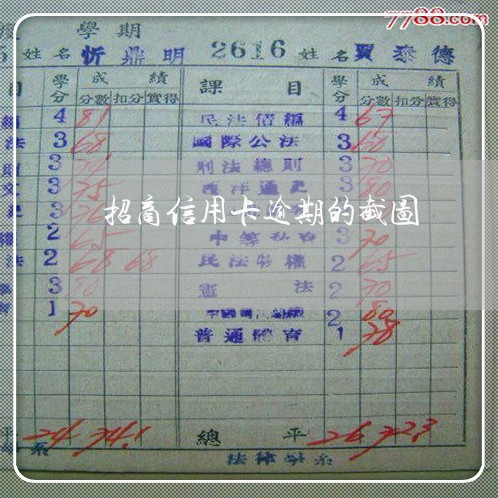 7788.com
學期
姓名 忻鼎明 2616 姓名 賈泰德
目 學分 成績 課目 學分 成績
分數 扣分 實得 分數 扣分 實得
4 81 民法債編 4 67
法 3 68 國際公法 3 60
則 3 刑法總則 3 70
3 75 西洋通史 3 80
3
招商信用卡逾期的截圖
2 65 3 70
法 2 68 68 民法物權 2 65
3 80 憲法 2 70
1 70 2 80
普通體育 1 78
平 24 74.1 總平 26 72.3
系 法律學系